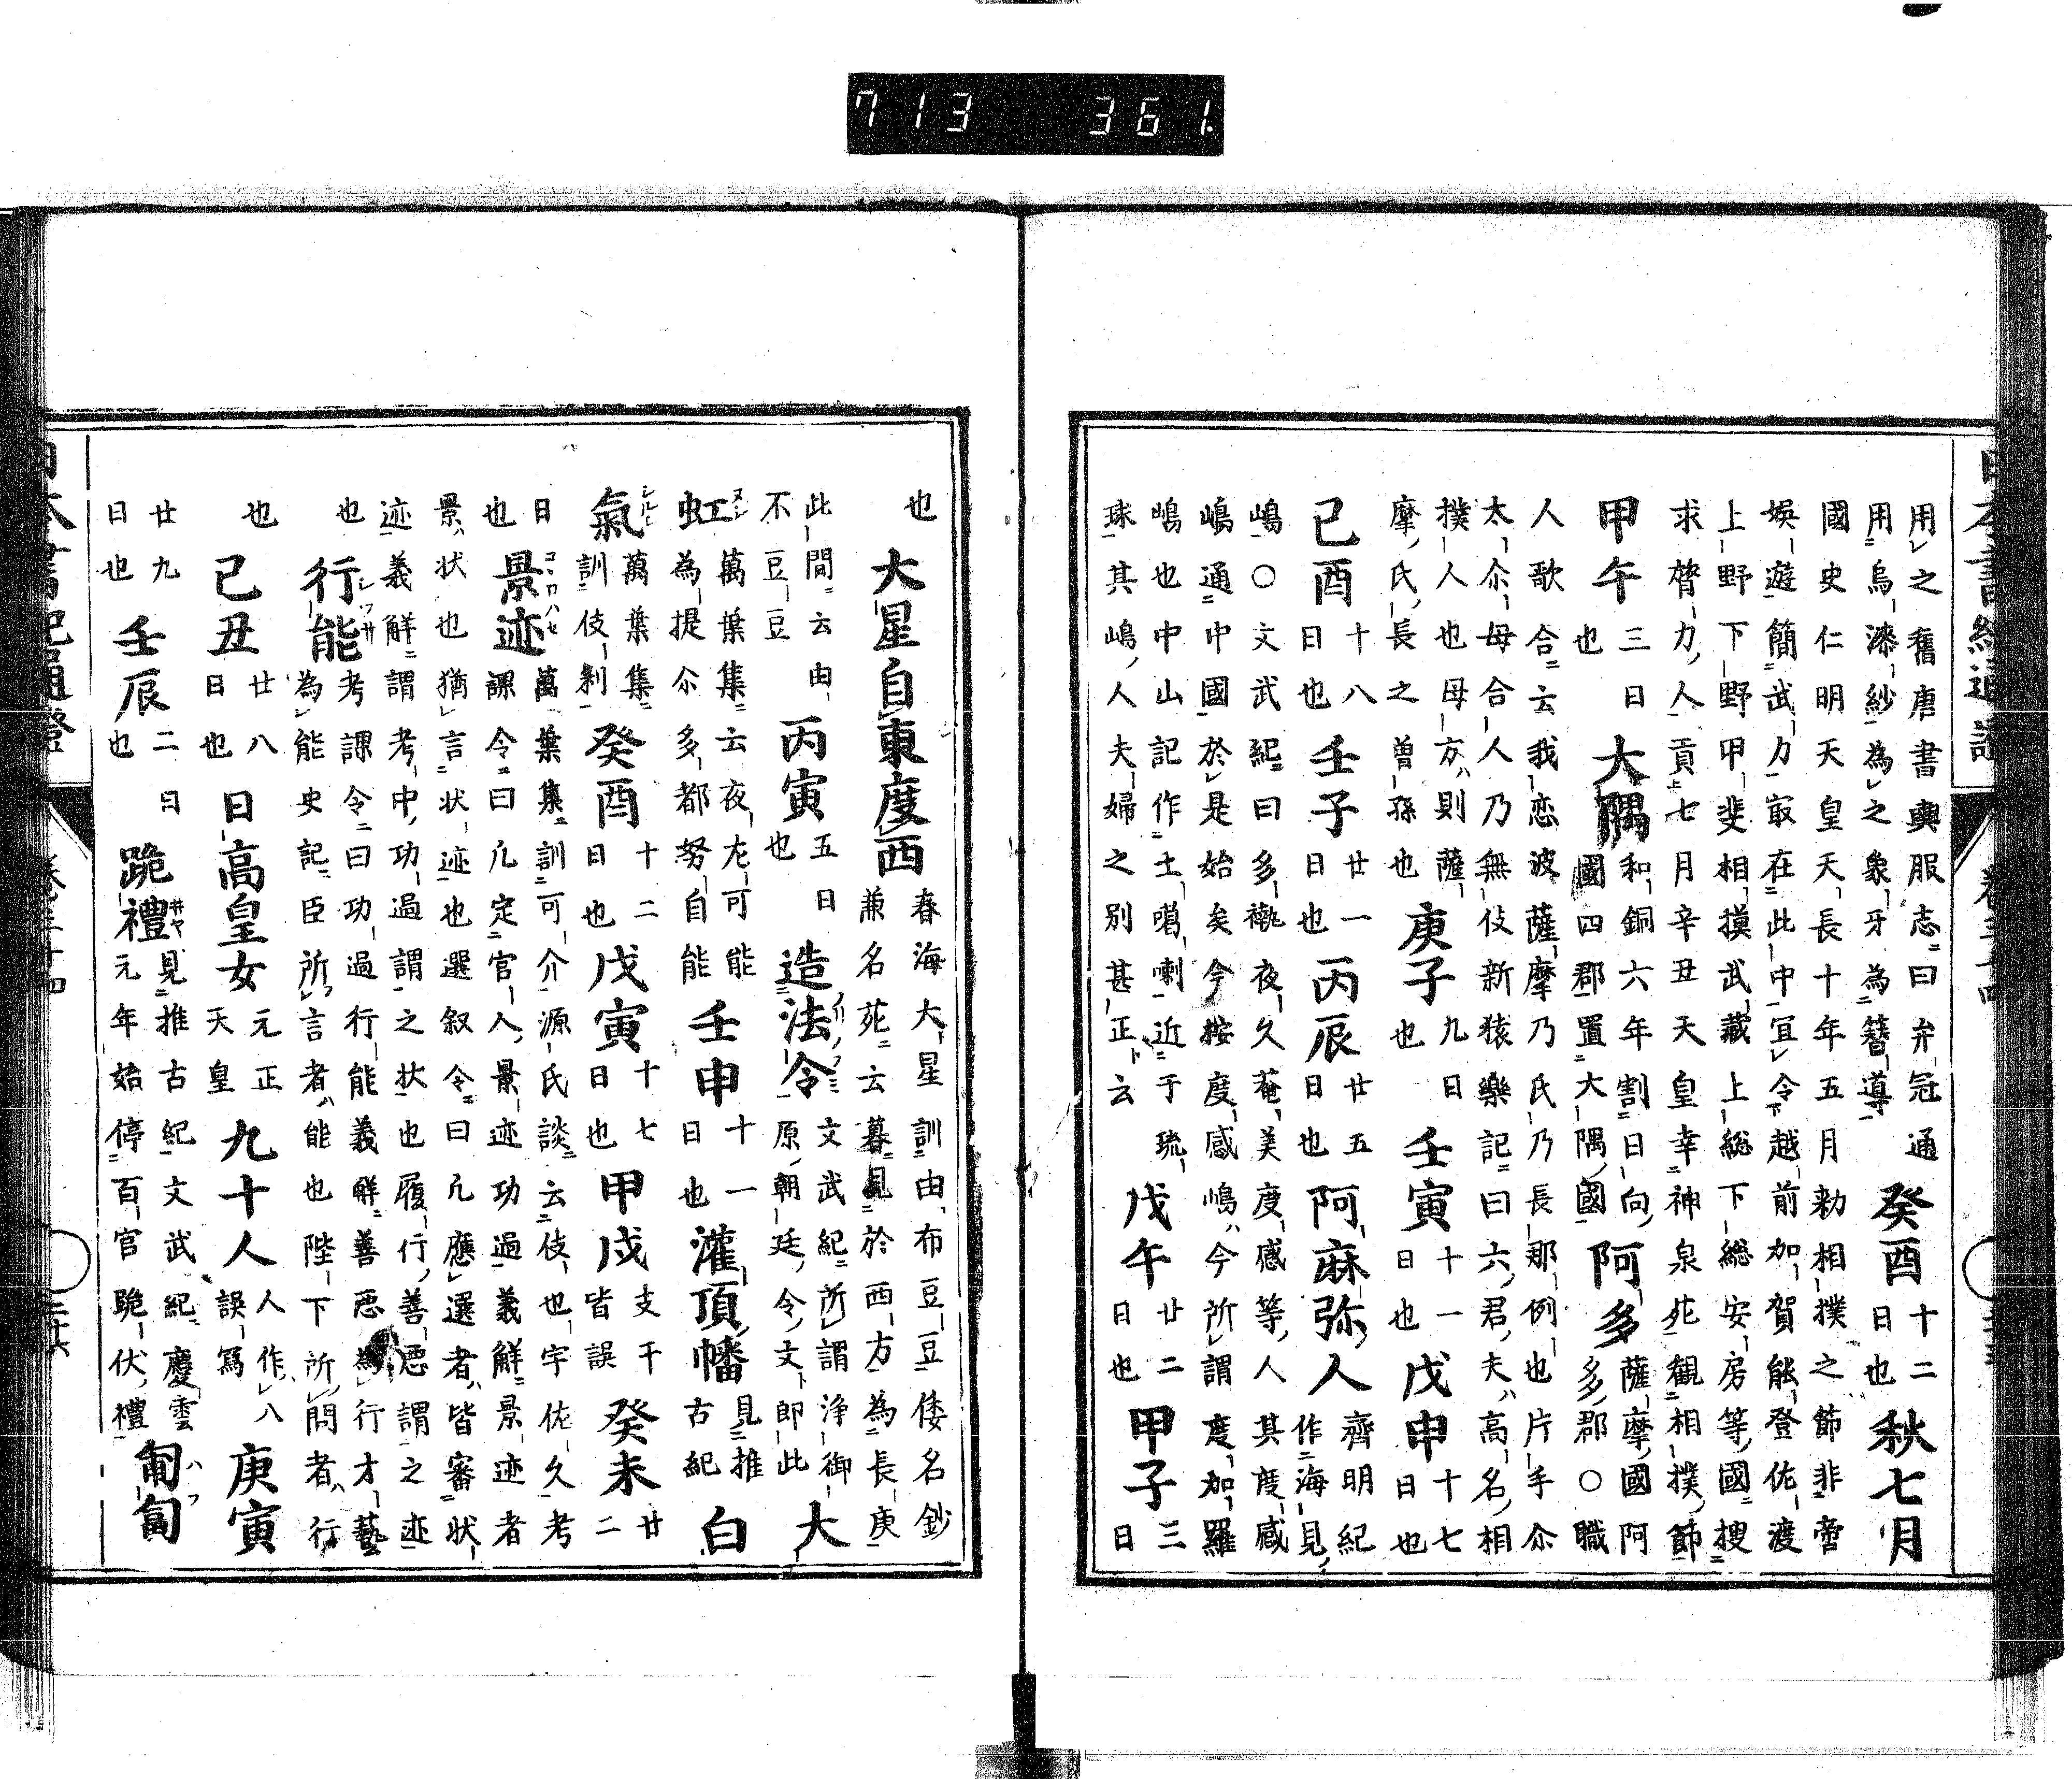 用之舊唐書輿服志曰弁冠通
用烏漆紗為之象牙為簪導
癸酉
十二
日也
秋七月
國史仁明天皇天長十年五月勅相撲之節非啻
娯遊簡武力最在此中宜令越前加賀能登佐渡
上野下野甲斐相摸武藏上総下総安房等國搜
求膂力人貢七月辛丑天皇幸神泉苑観相撲節
甲午
三日
也
大隅
和銅六年割日向
國四郡置大隅國
阿多
薩摩國阿
多郡〇職
人歌合云我恋波薩摩乃氏乃長那例也片手尓
太尓母合人乃無伎新猿樂記曰六君夫ハ高名相
撲人也母方ハ則薩
摩氏長之曽孫也
庚子
九日
也
壬寅
十一
日也
戊申
十七
日也
己酉
十八
日也
壬子
廿一
日也
丙辰
廿五
日也
阿麻弥人
齊明紀
作海見
嶋〇文武紀曰多褹夜久菴美度感等人其度感
嶋通中國於是始矣今按度感嶋ハ今所謂度加羅
嶋也中山記作土噶喇近于琉
球其嶋人夫婦之別甚正云
戊午
廿二
日也
甲子
三
日
也
大星自東度西
春海大星訓由布豆豆倭名鈔
兼名苑云暮見於西方為長庚
此間云由
不豆豆
丙寅
五日
也
造法令
文武紀所謂浄御
原朝廷令文即此
大
虹
萬葉集云夜左可能
為提尓多都努自能
壬申
十一
日也
灌頂幡
見推
古紀
白
氣
萬葉集
訓伎利
癸酉
十二
日也
戊寅
十七
日也
甲戌
支干
皆誤
癸未
廿
二
日
也
景迹
萬葉集訓可介源氏談云伎也字佐久考
課令曰凡定官人景迹功過義解景迹者
景ハ状也猶言状迹也選叙令曰凡應選者ハ皆審状
迹義解謂考中功過謂之状也履行善悪謂之迹
也
行能
考課令曰功過行能義解善悪為行才藝
為能史記臣所言者ハ能也陛下所問者ハ行
也
己丑
廿八
日也
日高皇女
元正
天皇
九十人
人作八
誤寫
庚寅
廿九
日也
壬辰
二日
也
跪禮
見推古紀文武紀慶雲
元年始停百官跪伏禮
匍匐
713 361.